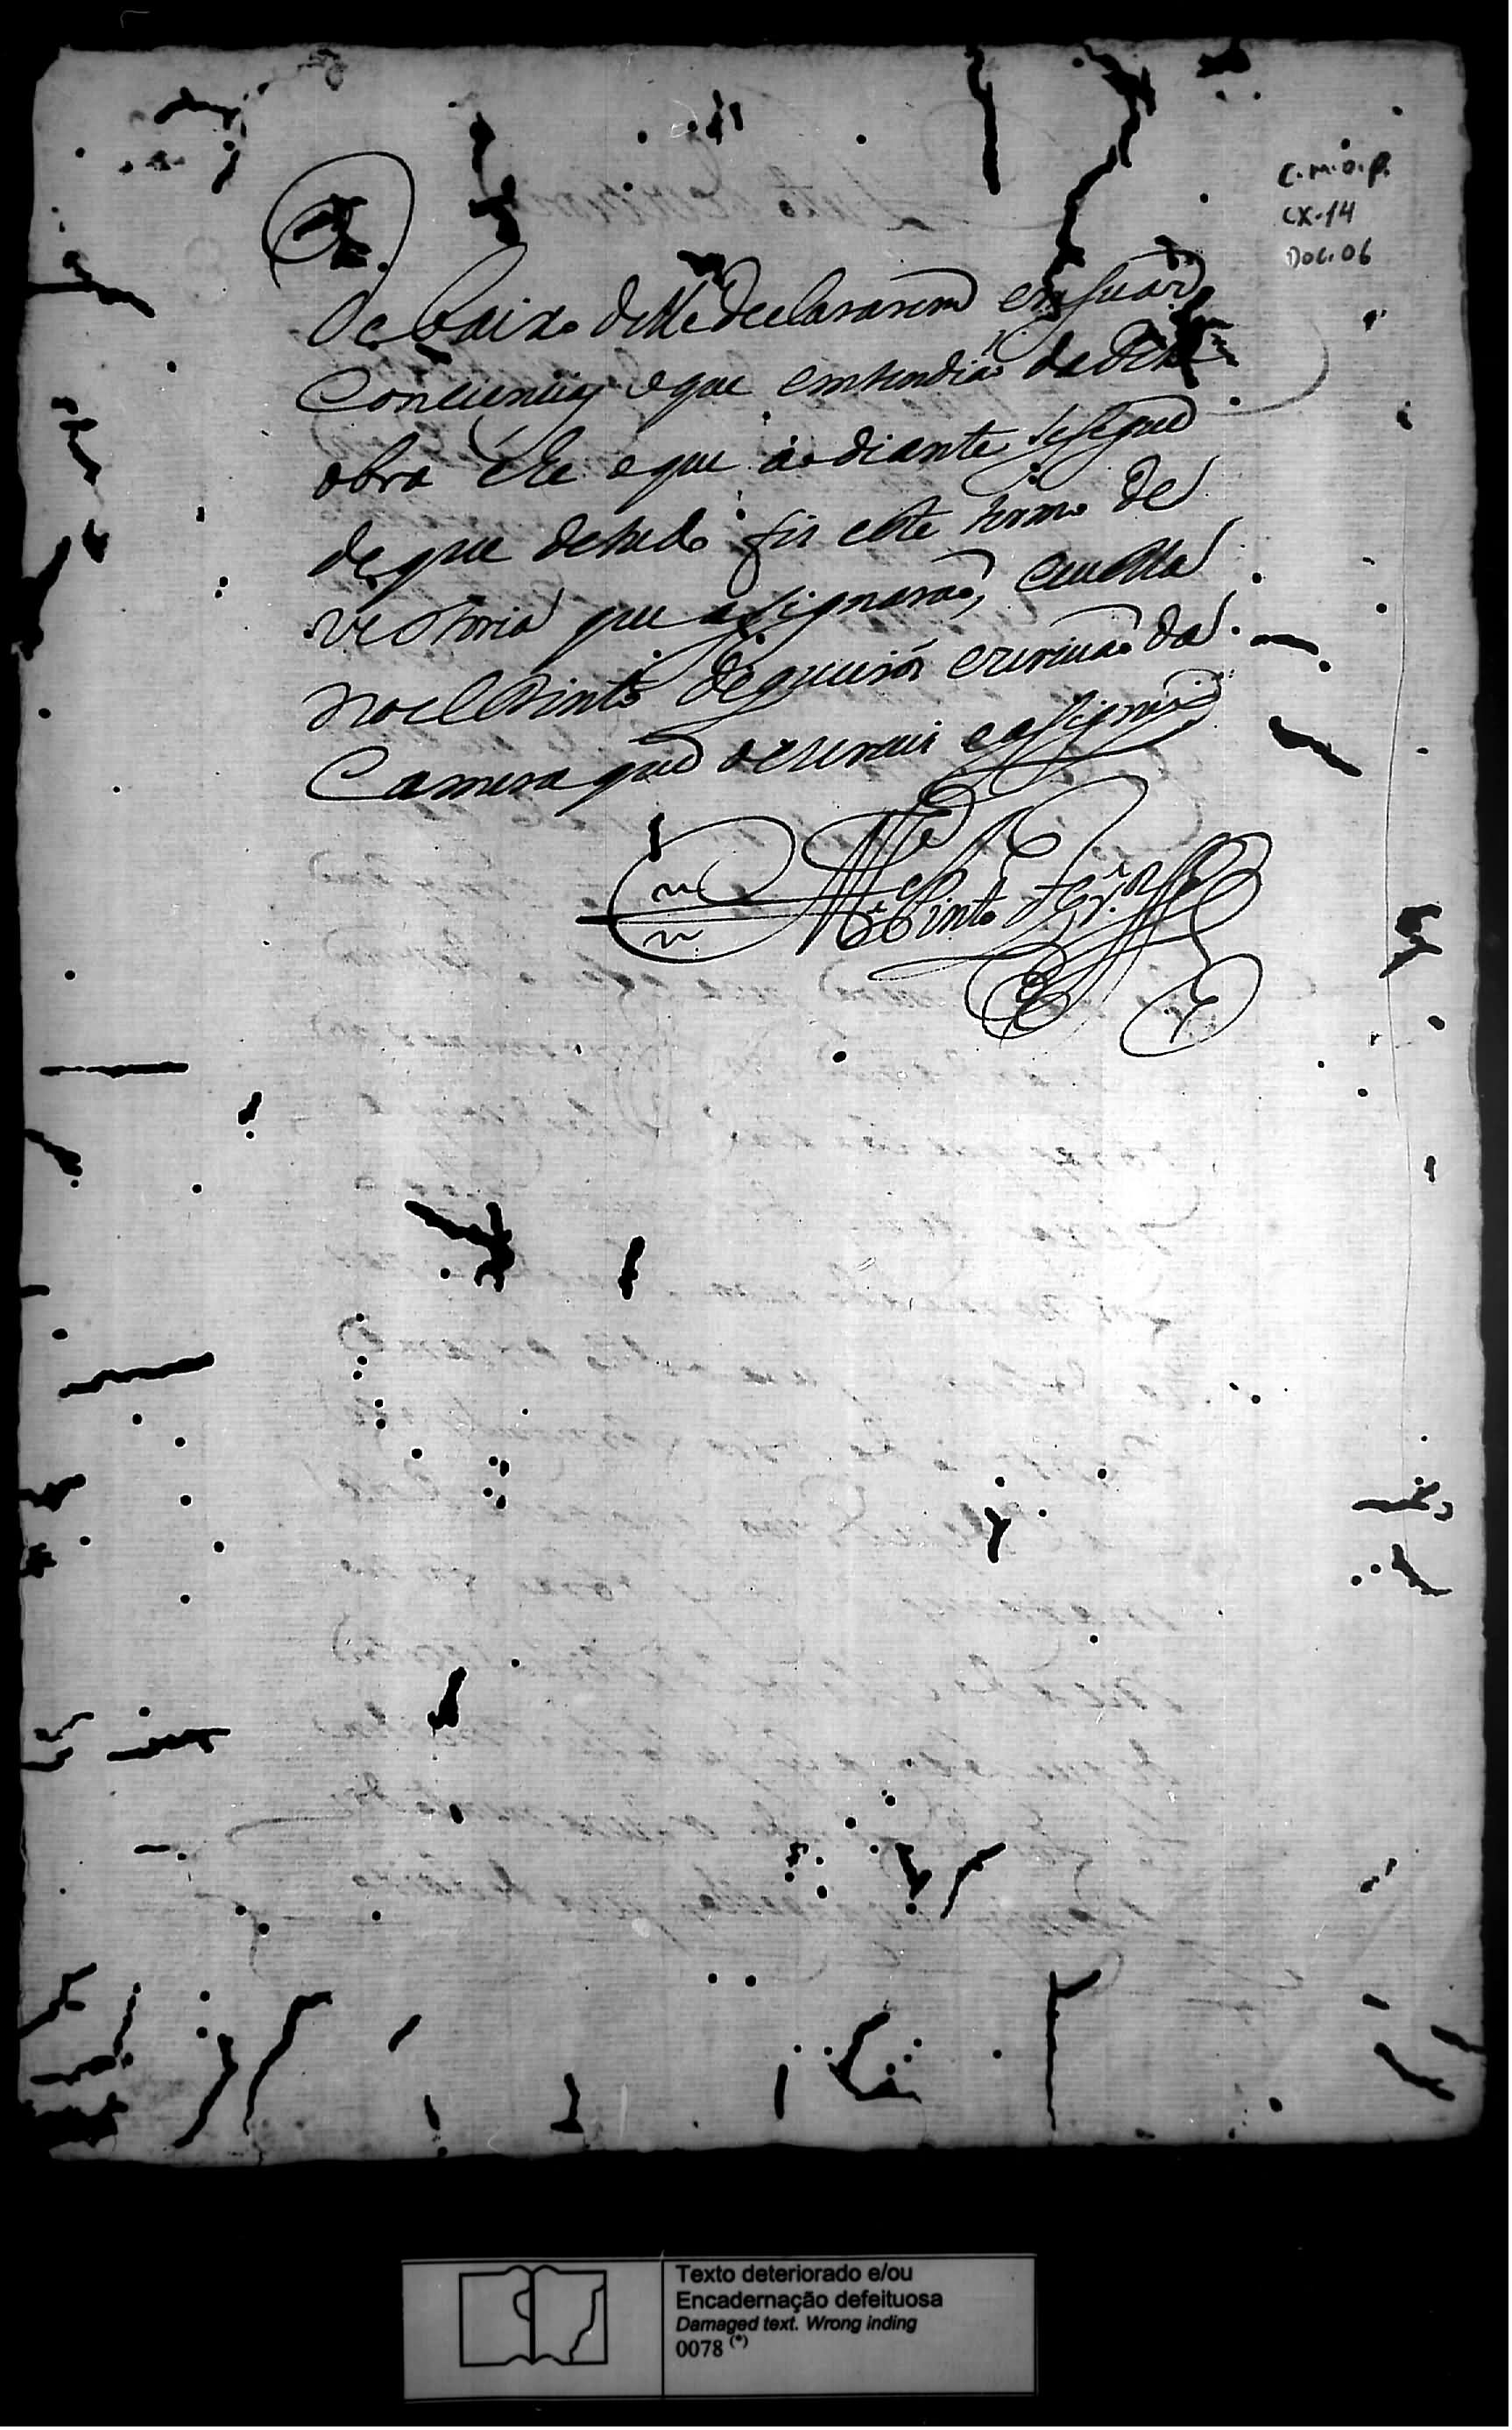 C.M.O.P.
CX-14
DOC. 06
De baixo delle declararem em suas
Conciencias o que entendião da dita
obra he o que ao diante se segue
de que de tudo fis este termo de
vestoria que asignarão, eu Ma
noel Pinto de queiros escrivão da
Camera que o escrevi e asigney
Mel Pinto
Texto deteriorado e/ou
Encadernação defeituosa
Damaged text. Wrong inding
0078 (*)